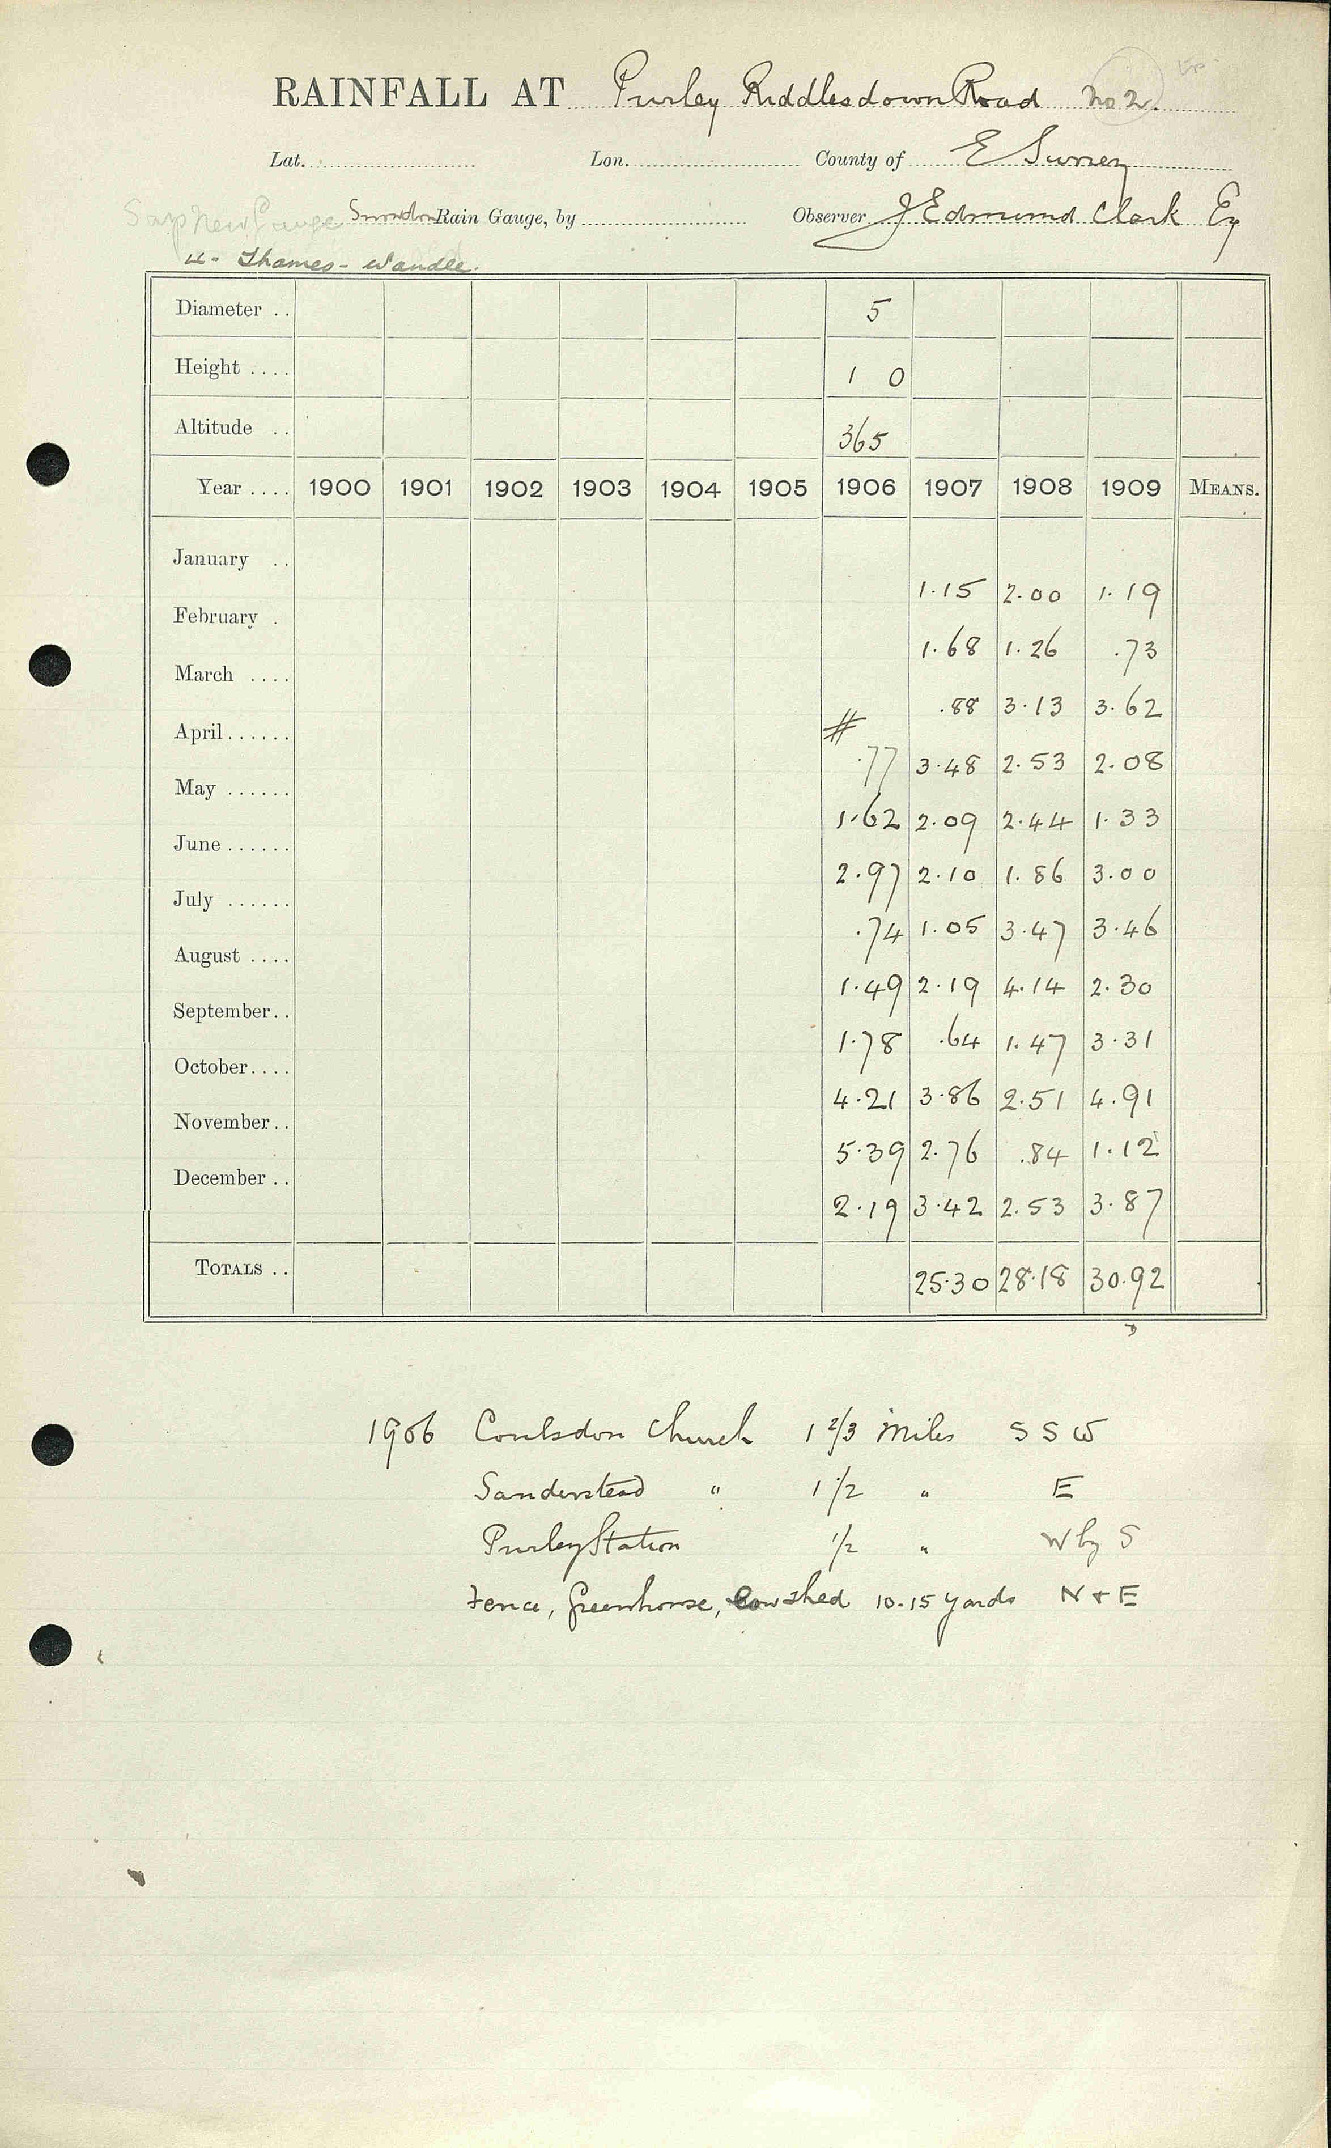 RAINFALL AT Purley Riddlesdown Road No 2.
Lat. Lon. County of E Surrey
Says New Gauge Snowdon Rain Gauge, by Observer J Edmund Clark Esq
4 - Thames - Wandle.
Diameter .. 5
Height .... 1 0
Altitude .. 365
Year .... 1900 1901 1902 1903 1904 1905 1906 1907 1908 1909 MEANS.
January .. 1.15 2.00 1.19
February . 1.68 1.26 .73
March .... .88 3.13 3.62
#
April...... .77 3.48 2.53 2.08
May ...... 1.62 2.09 2.44 1.33
June ...... 2.97 2.10 1.86 3.00
July ...... .74 1.05 3.47 3.46
August .... 1.49 2.19 4.14 2.30
September.. 1.78 .64 1.47 3.31
October.... 4.21 3.86 2.51 4.91
November.. 5.39 2.76 .84 1.12
December .. 2.19 3.42 2.53 3.87
TOTALS .. 25.30 28.18 30.92
1906 Coulsdon Church 1 2/3 miles S S W
Sanderstead " 1 1/2 " E
Purley Station 1/2 " W by S
Fence, Greenhouse, Cowshed 10-15 yards N + E